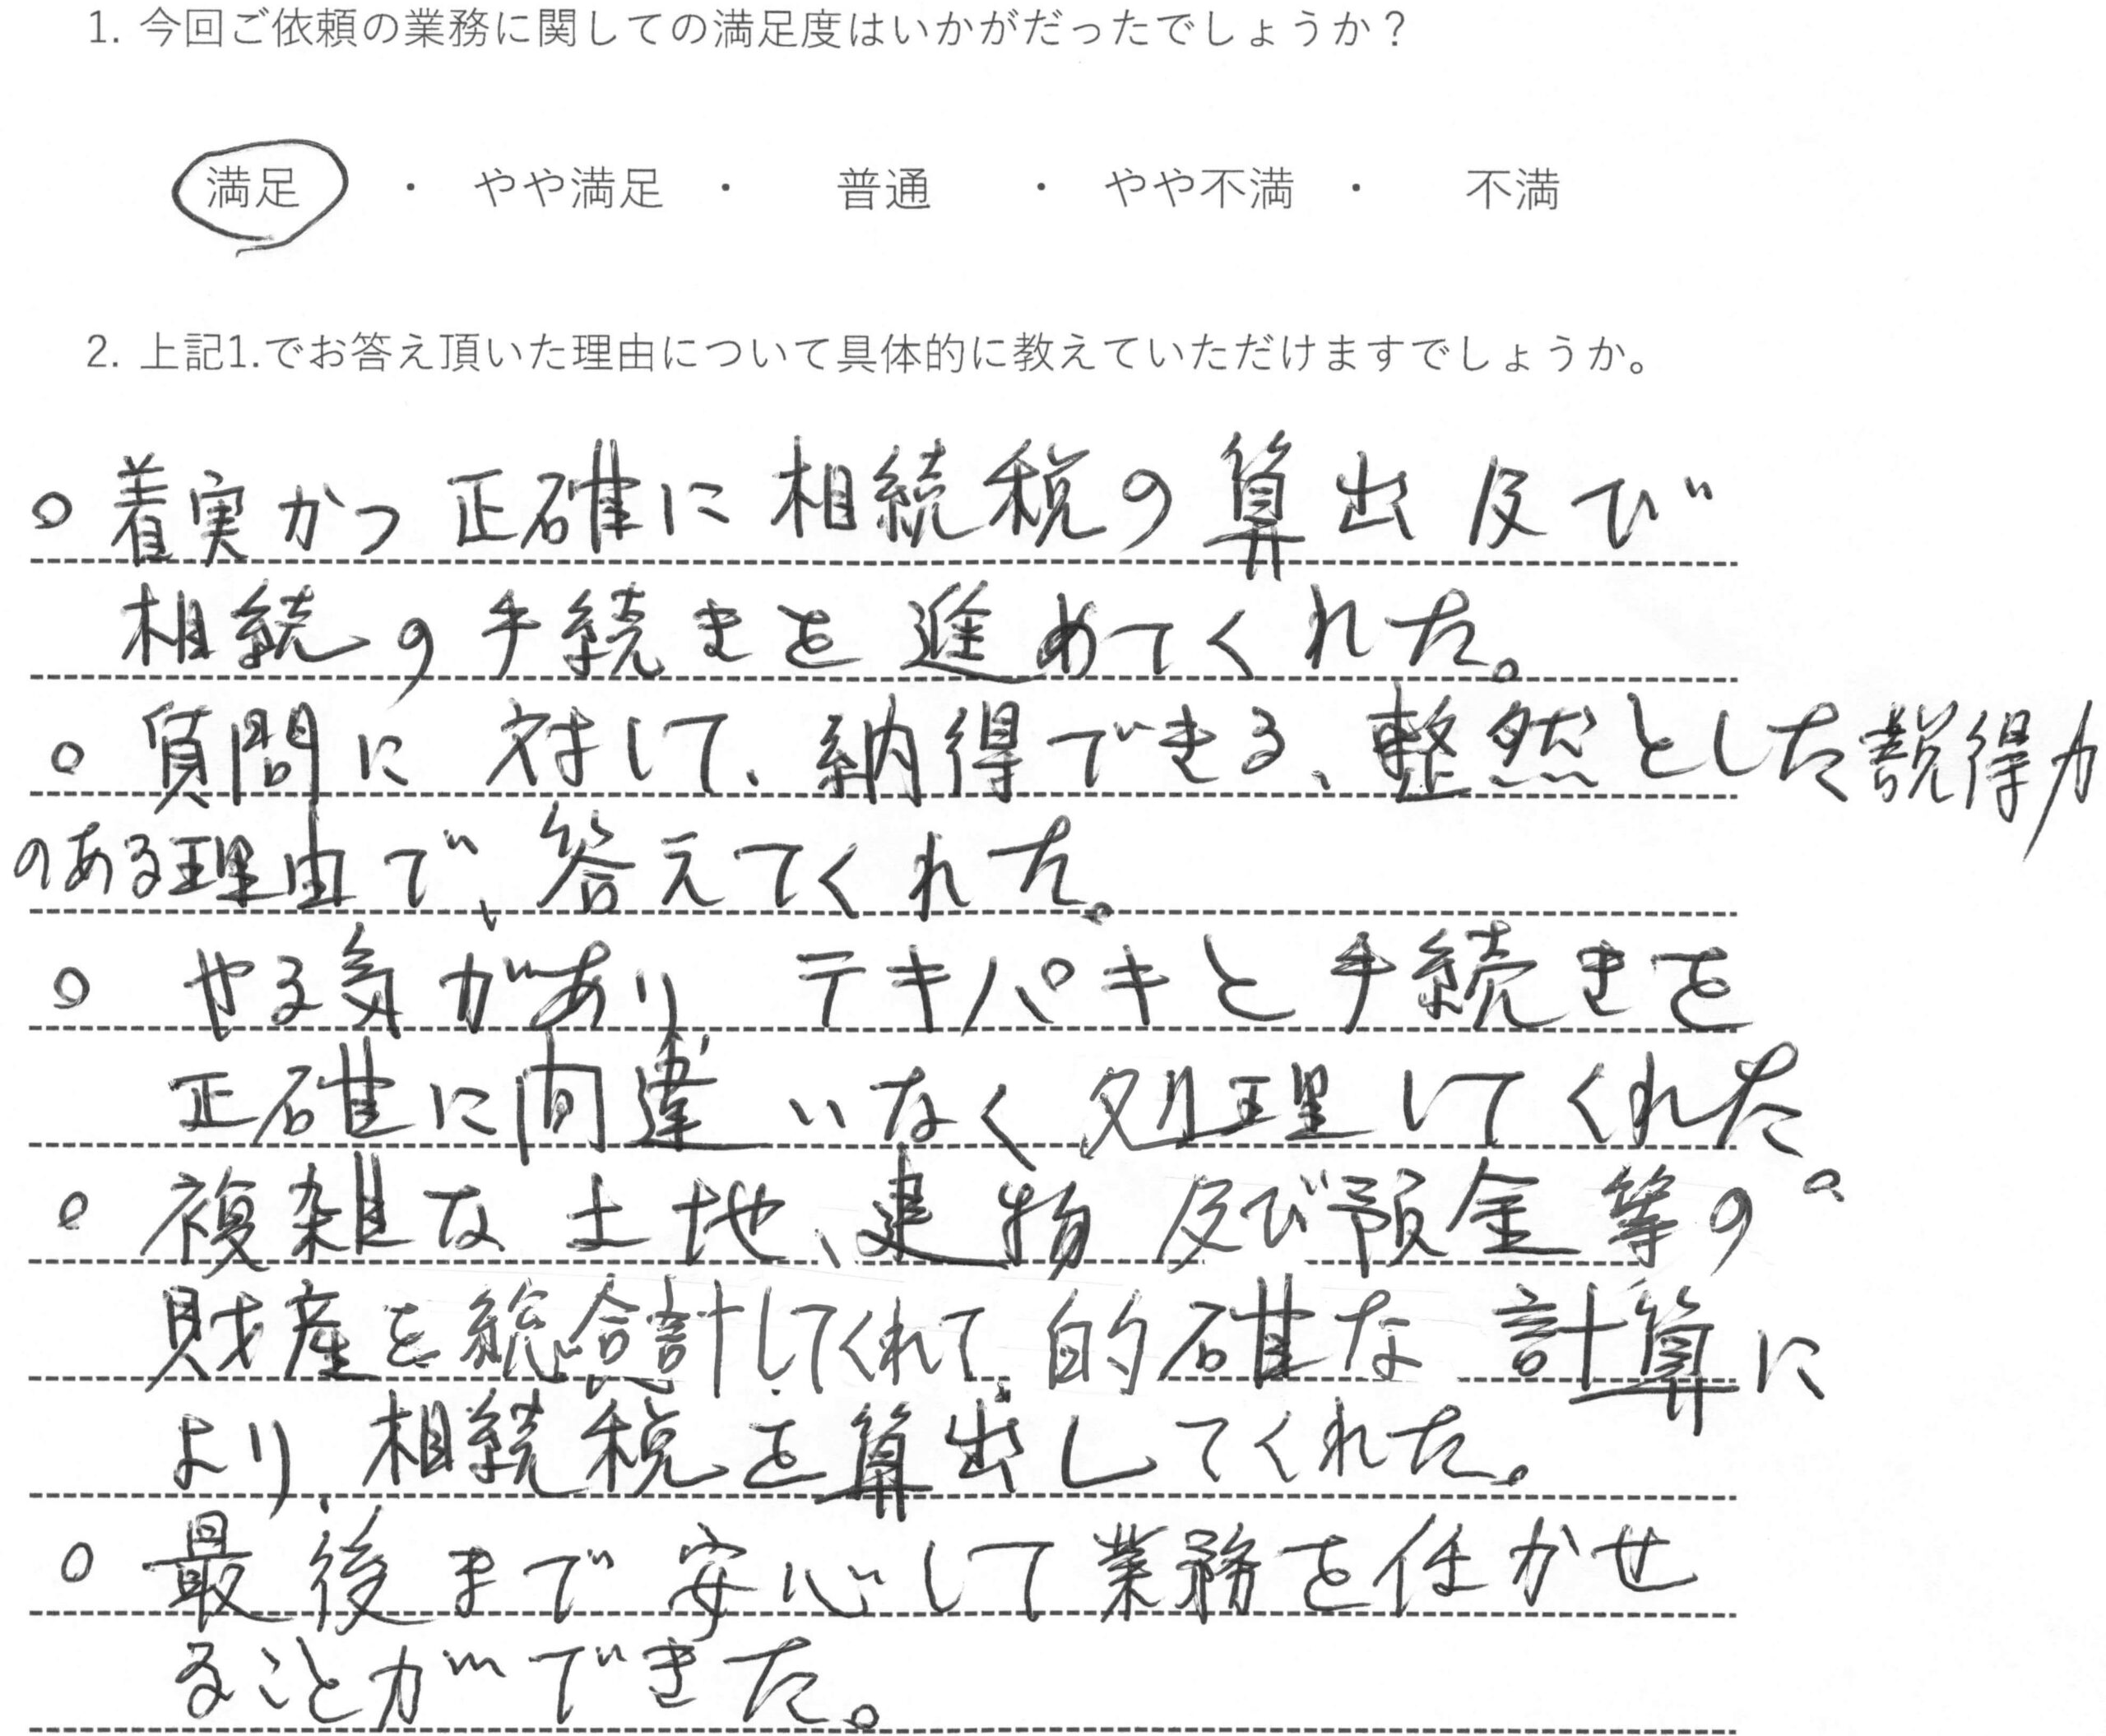 1. 今回ご依頼の業務に関しての満足度はいかがだったでしょうか？
満足 ・ やや満足 ・ 普通 ・ やや不満 ・ 不満
2. 上記1.でお答え頂いた理由について具体的に教えていただけますでしょうか。
○ 着実かつ正確に相続税の算出及び
相続の手続きを進めてくれた。
○ 質問に対して、納得できる、整然とした説得力
のある理由で、答えてくれた。
○ やる気があり、テキパキと手続きを
正確に間違いなく処理してくれた。
○ 複雑な土地、建物及び預金等の
財産を総合計してくれて、的確な計算に
より、相続税を算出してくれた。
○ 最後まで安心して業務を任かせ
ることができた。